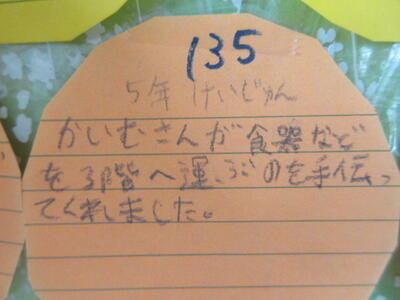 135
5年 けいじゅん
かいむさんが食器など
を3階へ運ぶのを手伝っ
てくれました。